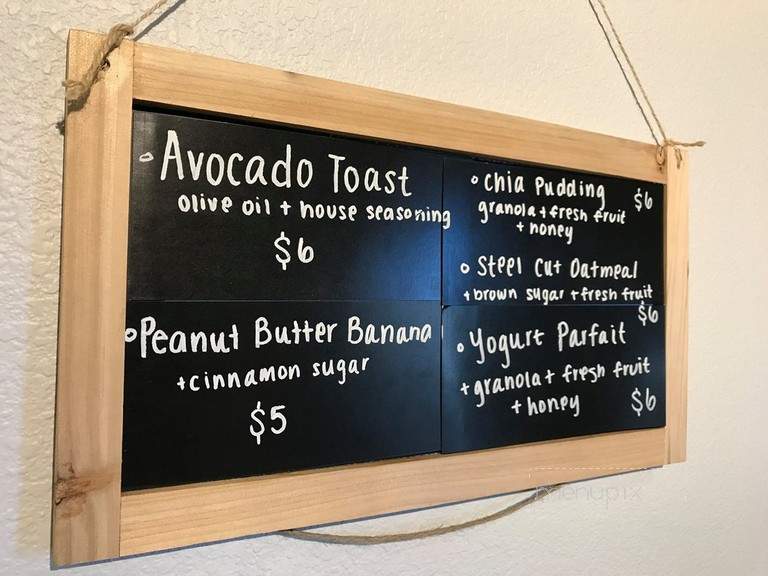 Avocado Toast
olive oil + house seasoning
$6
Peanut Butter Banana
+cinnamon sugar
$5
Chia Pudding $6
granola + fresh fruit
+ honey
Steel Cut Oatmeal
+ brown sugar + fresh fruit
$6
Yogurt Parfait
+ granola + fresh fruit
+ honey $6
menupix